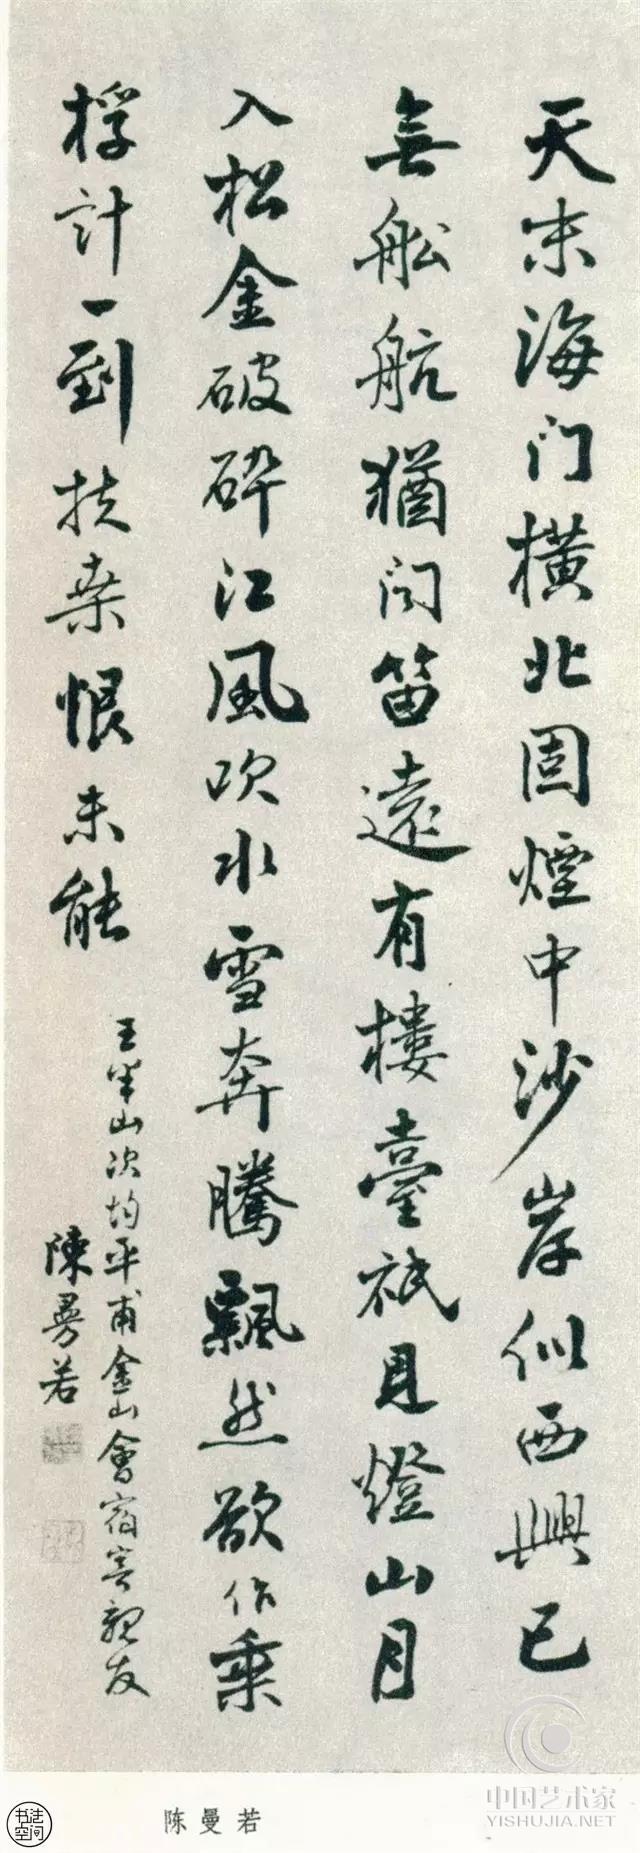 天末海門橫北固煙中沙岸似西興已
無船舩航猶聞笛遠有樓臺祇見燈山月
入松金破碎江風吹水雪奔騰飄然欲作乘
桴計一到扶桑恨未能
王半山次韵平甫金山會宿寄親友
陳曼若
陈曼若
书法空间
中国艺术家
YISHUJIA.NET